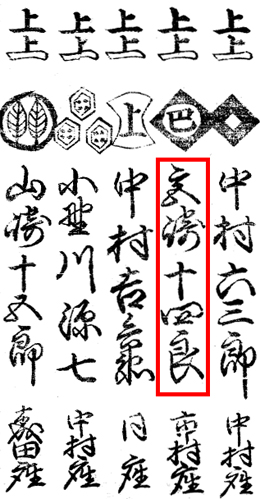 上上 上上 上上 上上 上上
巴 上
中村六三郎
崎十四良
中村吉兵衛
小埜川源七
山崎十五郎
中村座
市村座
同座
中村座
森田座